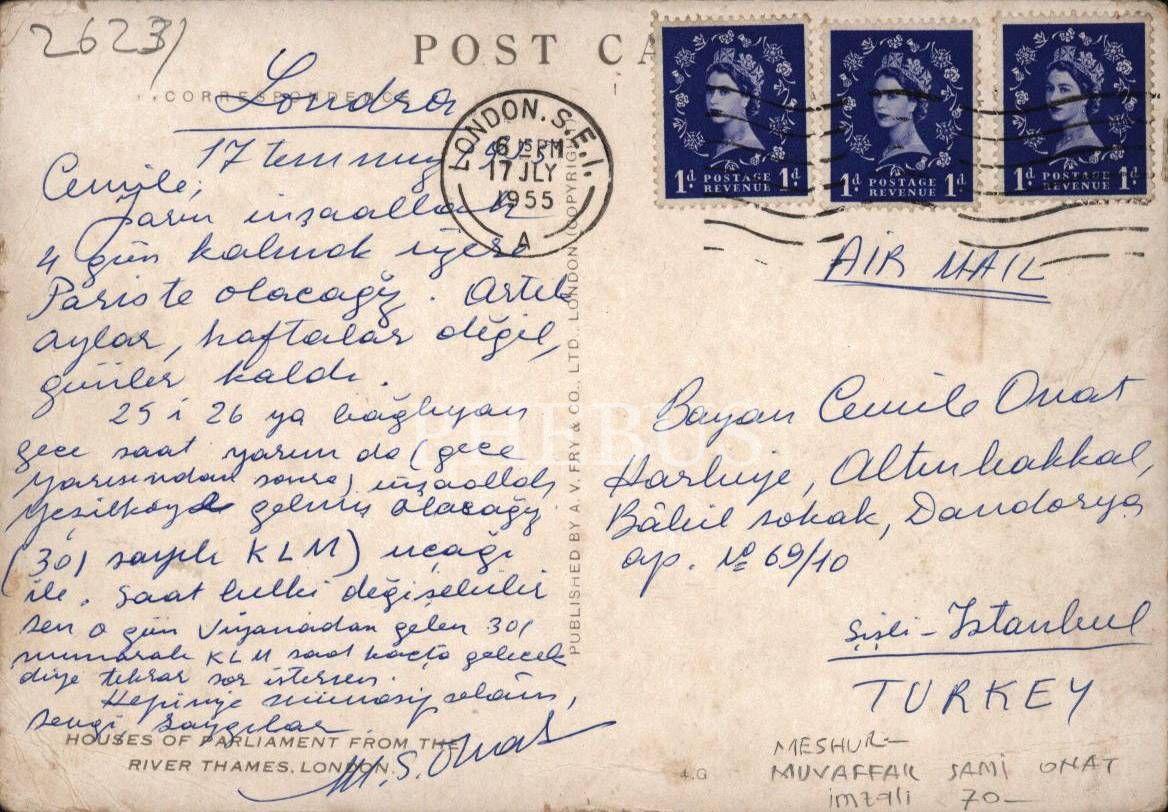 26231
POST CA
CORRESPONDENCE
Londra
17 temmuz 955
Cemile,
Yarın inşaallah
4 gün kalmak üzere
Pariste olacağız. Artık
aylar, haftalar değil,
günler kaldı.
25 i 26 ya bağlıyan
gece saat yarım da (gece
yarısından sonra) inşaallah
Yeşilköyde gelmiş olacağız
(301 sayılı KLM) uçağı
ile. Saat belki değişebilir
sen o gün Viyanadan gelen 301
numaralı KLM saat kaçta gelecek
diye tekrar sor istersen.
Hepinize münasip selâm,
sevgi, saygılar
M. S. Onat
HOUSES OF PARLIAMENT FROM THE
RIVER THAMES, LONDON.
LONDON. S.E.1.
6 15 PM
17 JLY
1955
A
PUBLISHED BY A. V. FRY & CO., LTD., LONDON (COPYRIGHT
1d POSTAGE REVENUE 1d
1d POSTAGE REVENUE 1d
1d POSTAGE REVENUE 1d
AIR MAIL
PHEBUS
Bayan Cemile Onat
Harbiye, Altınbakkal,
Bâbil sokak, Dandorya
ap. No 69/10
Şişli - Istanbul
TURKEY
4.G
MESHUR-
MUVAFFAK SAMI ONAT
imzalı 70-